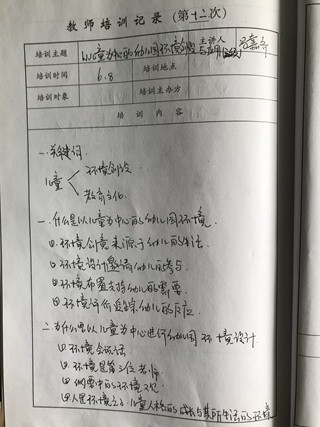 教师培训记录(第十二次)
培训主题 以儿童为中心的幼儿园环境创设 主讲人
培训时间 6.8 培训地点
培训对象 培训主办方
培训内容
一.关键词.
儿童 环境创设
教育文化
一.什么是以儿童为中心的幼儿园环境.
环境创境来源于幼儿的生活.
环境设计邀请幼儿的参与
环境布置支持幼儿的需要.
环境评价追踪幼儿的反应
二.为什么要以儿童为中心进行幼儿园环境设计
环境会说话
环境是第三位老师.
环境
儿童人格的成长与其所生活的环境